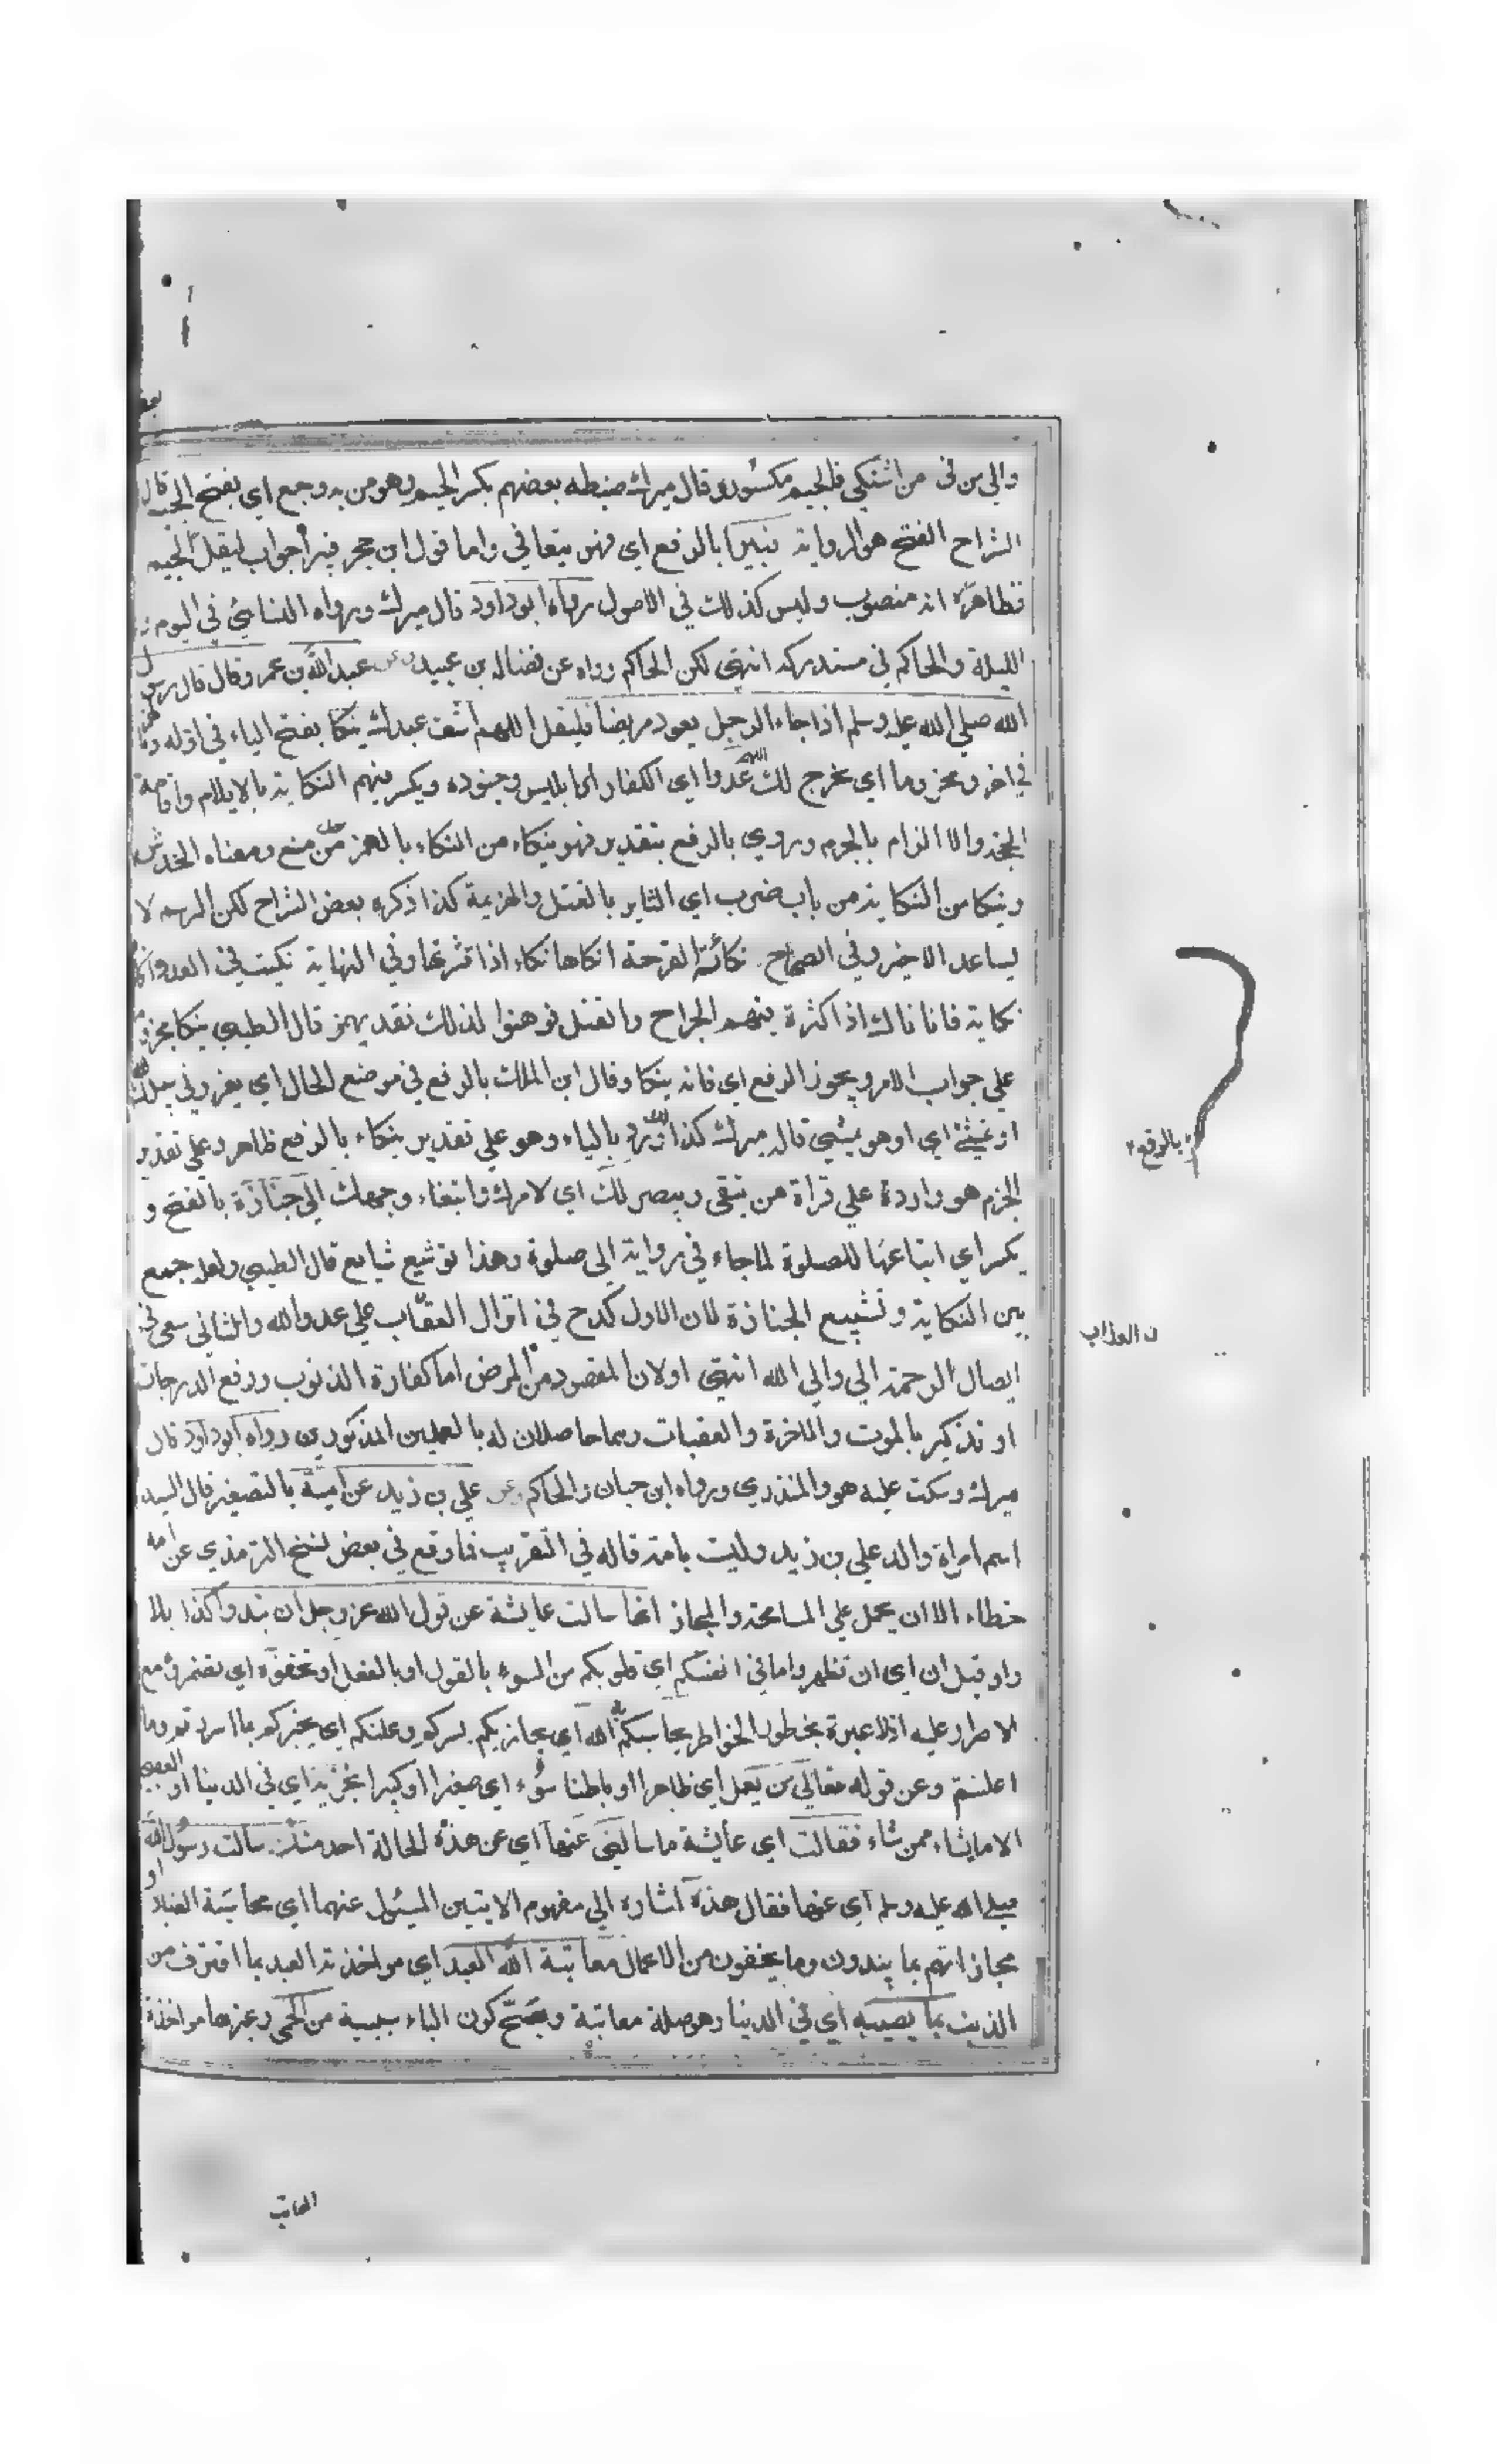 والي من في من اشتكي فالجيم مكسورة وقال ميرك ضبطه بعضهم بكسر الجيم وهو من به وجع اي بفتح الجيم قال
الشراح الفتح هو الرواية فيبرا بالرفع اي فهو يتعافي واما قول ابن حجر فيبرأ جواب ليقل الجيم
فظاهره انه منصوب وليس كذلك في الاصول رواه ابو داود قال ميرك ورواه النسائي في اليوم و
الليلة والحاكم في مستدركه انتهي لكن الحاكم رواه عن فضالة بن عبيد وعن عبد الله بن عمرو قال قال رسول
الله صلي الله عليه وسلم اذا جاء الرجل يعود مريضا فليقل اللهم اشف عبدك ينكا بفتح الياء في اوله وهمز
في اخره مجزوما اي يجرح لك عدوا اي الكفار او ابليس وجنوده ويكسر فيهم النكاية بالايلام واقامة
الحجة والالزام بالجزم وروي بالرفع بتقدير فهو ينكاء من النكاء بالهمز من منع ومعناه الخدش
وينكا من النكاية من باب ضرب اي التاثير بالقتل والهزيمة كذا ذكره بعض الشراح لكن الرسم لا
يساعد الاخير وفي الصحاح نكأت القرحة انكاها نكاء اذا قشرتها وفي النهاية نكيت في العدو انكي
نكاية فانا ناك اذا كثرة فيهم الجراح والقتل فوهنوا لذلك وقد يهمز قال الطيبي ينكا مجزوم
علي جواب الامر ويجوز الرفع اي فانه ينكا وقال ابن الملك بالرفع في موضع الحال اي يغزو في سبيلك
او يمشي اي او هو يمشي قال ميرك كذا ورد بالياء وهو علي تقدير ينكاء بالرفع ظاهر وعلي تقدير
الجزم هو وارد علي قراة من يتقي ويصبر لك اي لامرك وابتغاء وجهك الي جنازة بالفتح و
يكسر اي اتباعها للصلوة لما جاء في رواية الي صلوة وهذا توشيع شايع قال الطيبي ولعله جمع
بين النكاية وتشييع الجنازة لان الاول كدح في انزال العقاب علي عدو الله والثاني سعي في
ايصال الرحمة الي والي الله انتهي او لان المقصود من المرض اما كفارة الذنوب ورفع الدرجات
او تذكير بالموت والاخرة والعقبات وهما حاصلان له بالعملين المذكورين رواه ابو داود قال
ميرك وسكت عليه هو والمنذري ورواه ابن حبان والحاكم وعن علي بن زيد عن امية بالتصغير قال السيد
اسم امراة والد علي بن زيد وليت بامه قاله في التقريب فما وقع في بعض نسخ الترمذي عن امه
خطاء الا ان يحمل علي المسامحة والمجاز انها سالت عايشة عن قول الله عز وجل ان تبدوا كذا بلا
واو قبل ان اي ان تظهروا ما في انفسكم اي قلوبكم من السوء بالقول او بالفعل او تخفوه اي تضمروه مع
الاصرار عليه اذ لا عبرة بخطور الخواطر يحاسبكم به الله اي يجازيكم بسركم وعلنكم اي يخبركم بما اسررتم وما
اعلنتم وعن قوله تعالي من يعمل اي ظاهرا او باطنا سوء اي صغيرا او كبيرا يجز به اي في الدنيا او العقبي
الا ما يشاء ممن شاء فقالت اي عايشة ما سالني عنها اي عن هذه الحالة احد منذ سالت رسول الله
صلي الله عليه وسلم اي عنها فقال هذه اشارة الي مفهوم الايتين المسئول عنهما اي محاسبة العباد او
مجازاتهم بما يبدون وما يخفون من الاعمال معاتبة الله العبد اي مواخذته العبد بما اقترف من
الذنب بما يصيبه اي في الدنيا وهو صلة معاتبة ويصح كون الباء سببية من الحمي وغيرها مواخذة
بالرفع
ن العذاب
المعاتب